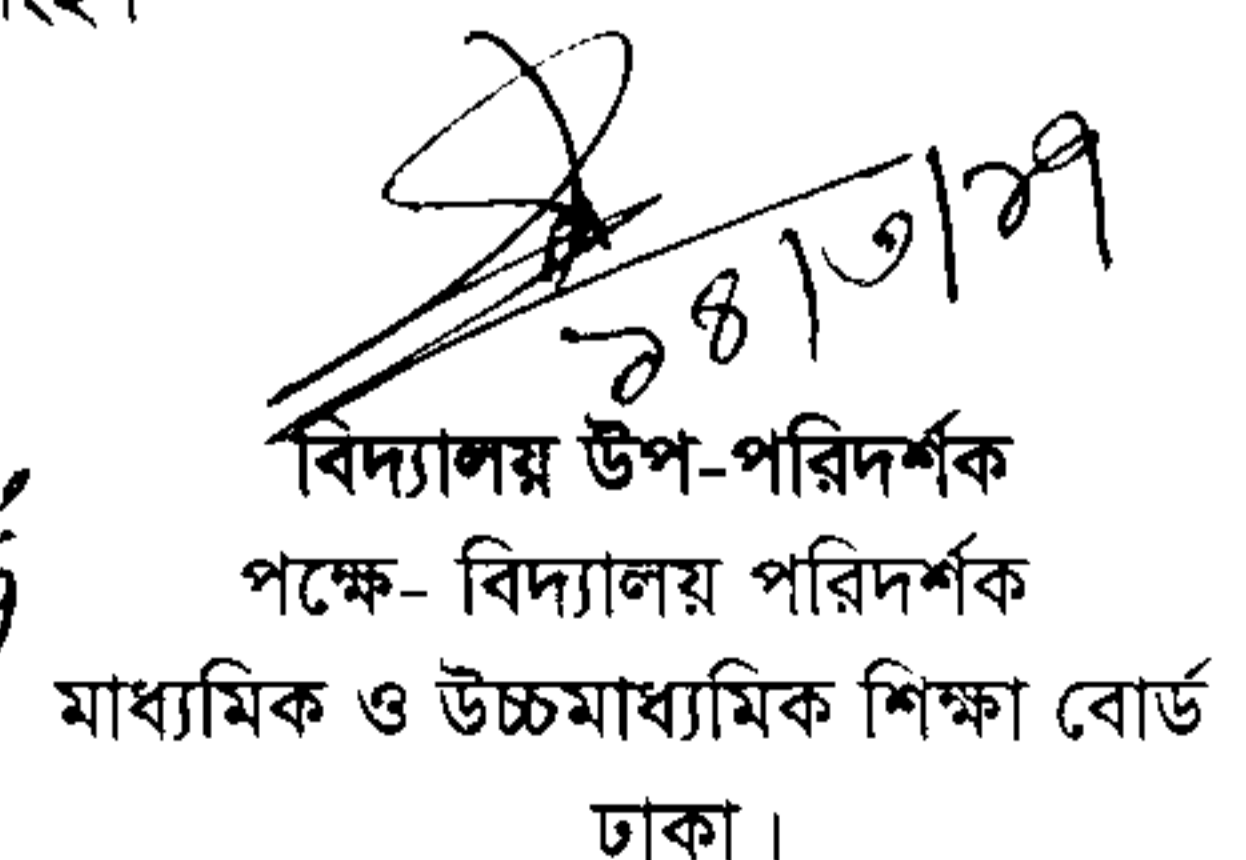 ২৪/৩/২৭
বিদ্যালয় উপ-পরিদর্শক
পক্ষে- বিদ্যালয় পরিদর্শক
মাধ্যমিক ও উচ্চমাধ্যমিক শিক্ষা বোর্ড
ঢাকা।